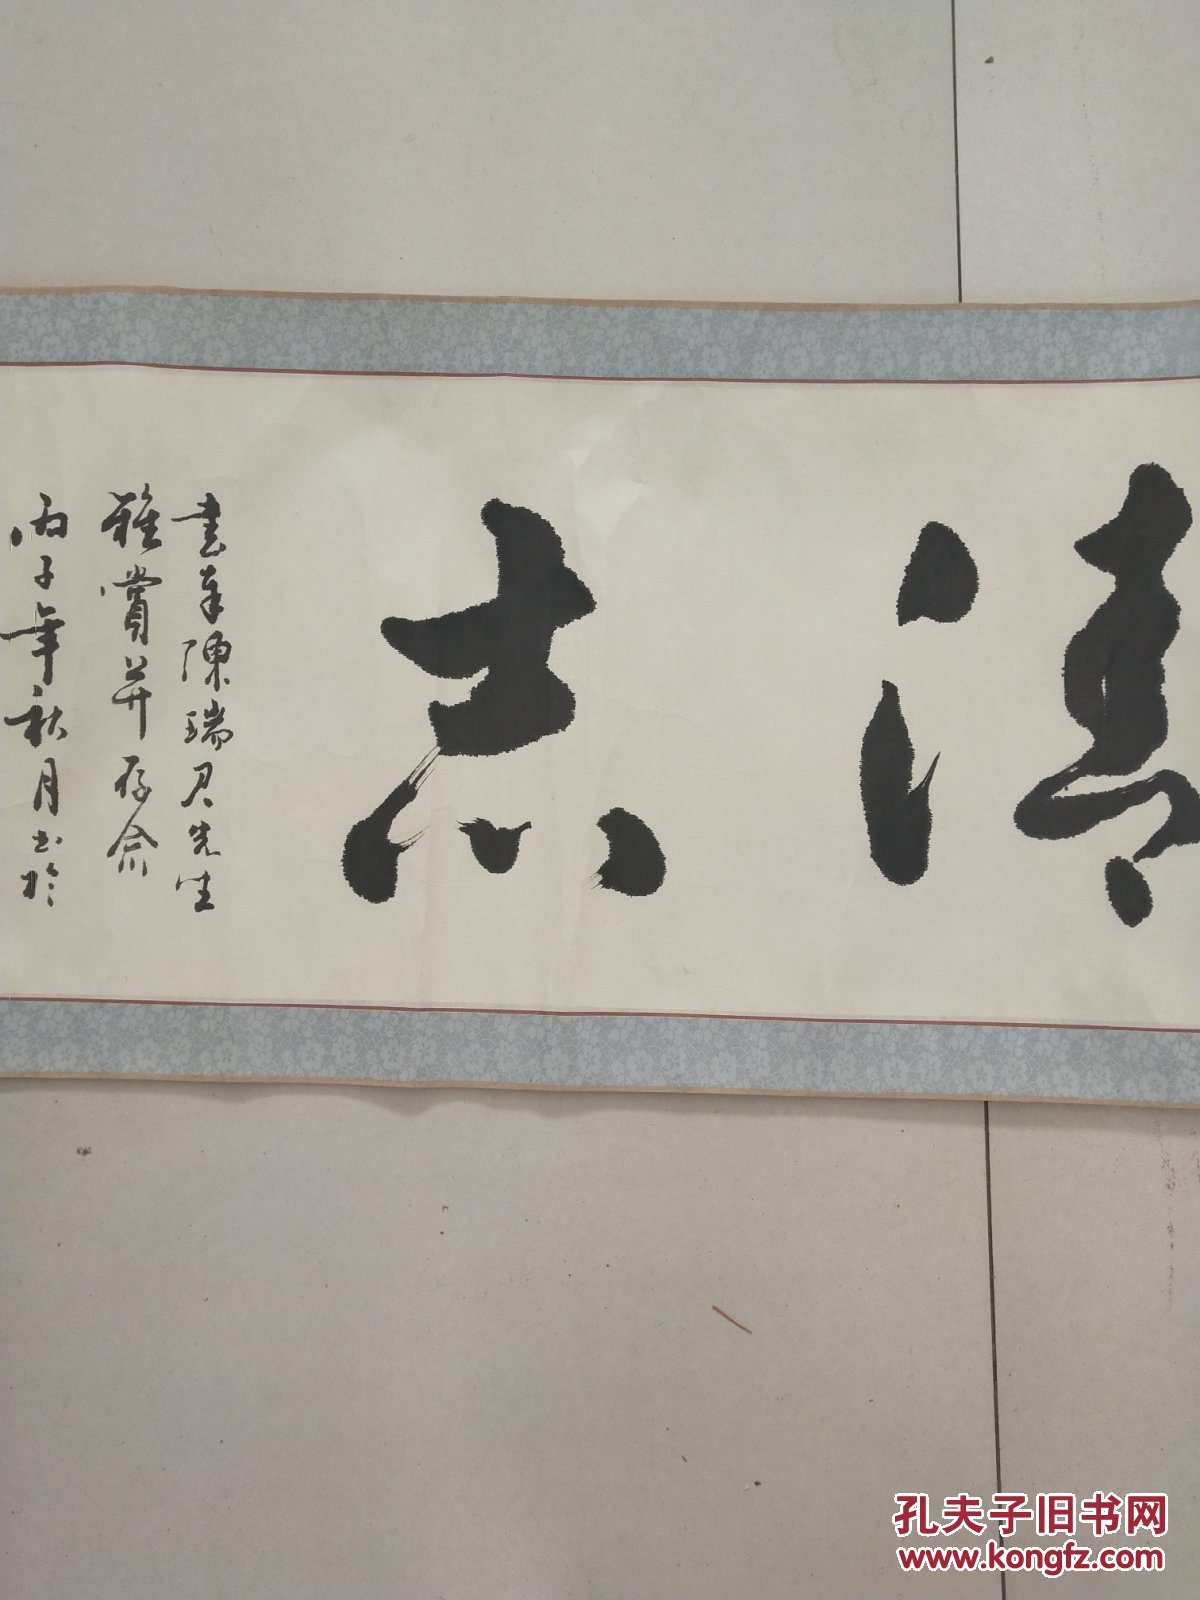 清志
書奉陳瑞君先生
雅賞并存念
丙子年秋月书於
孔夫子旧书网
www.kongfz.com